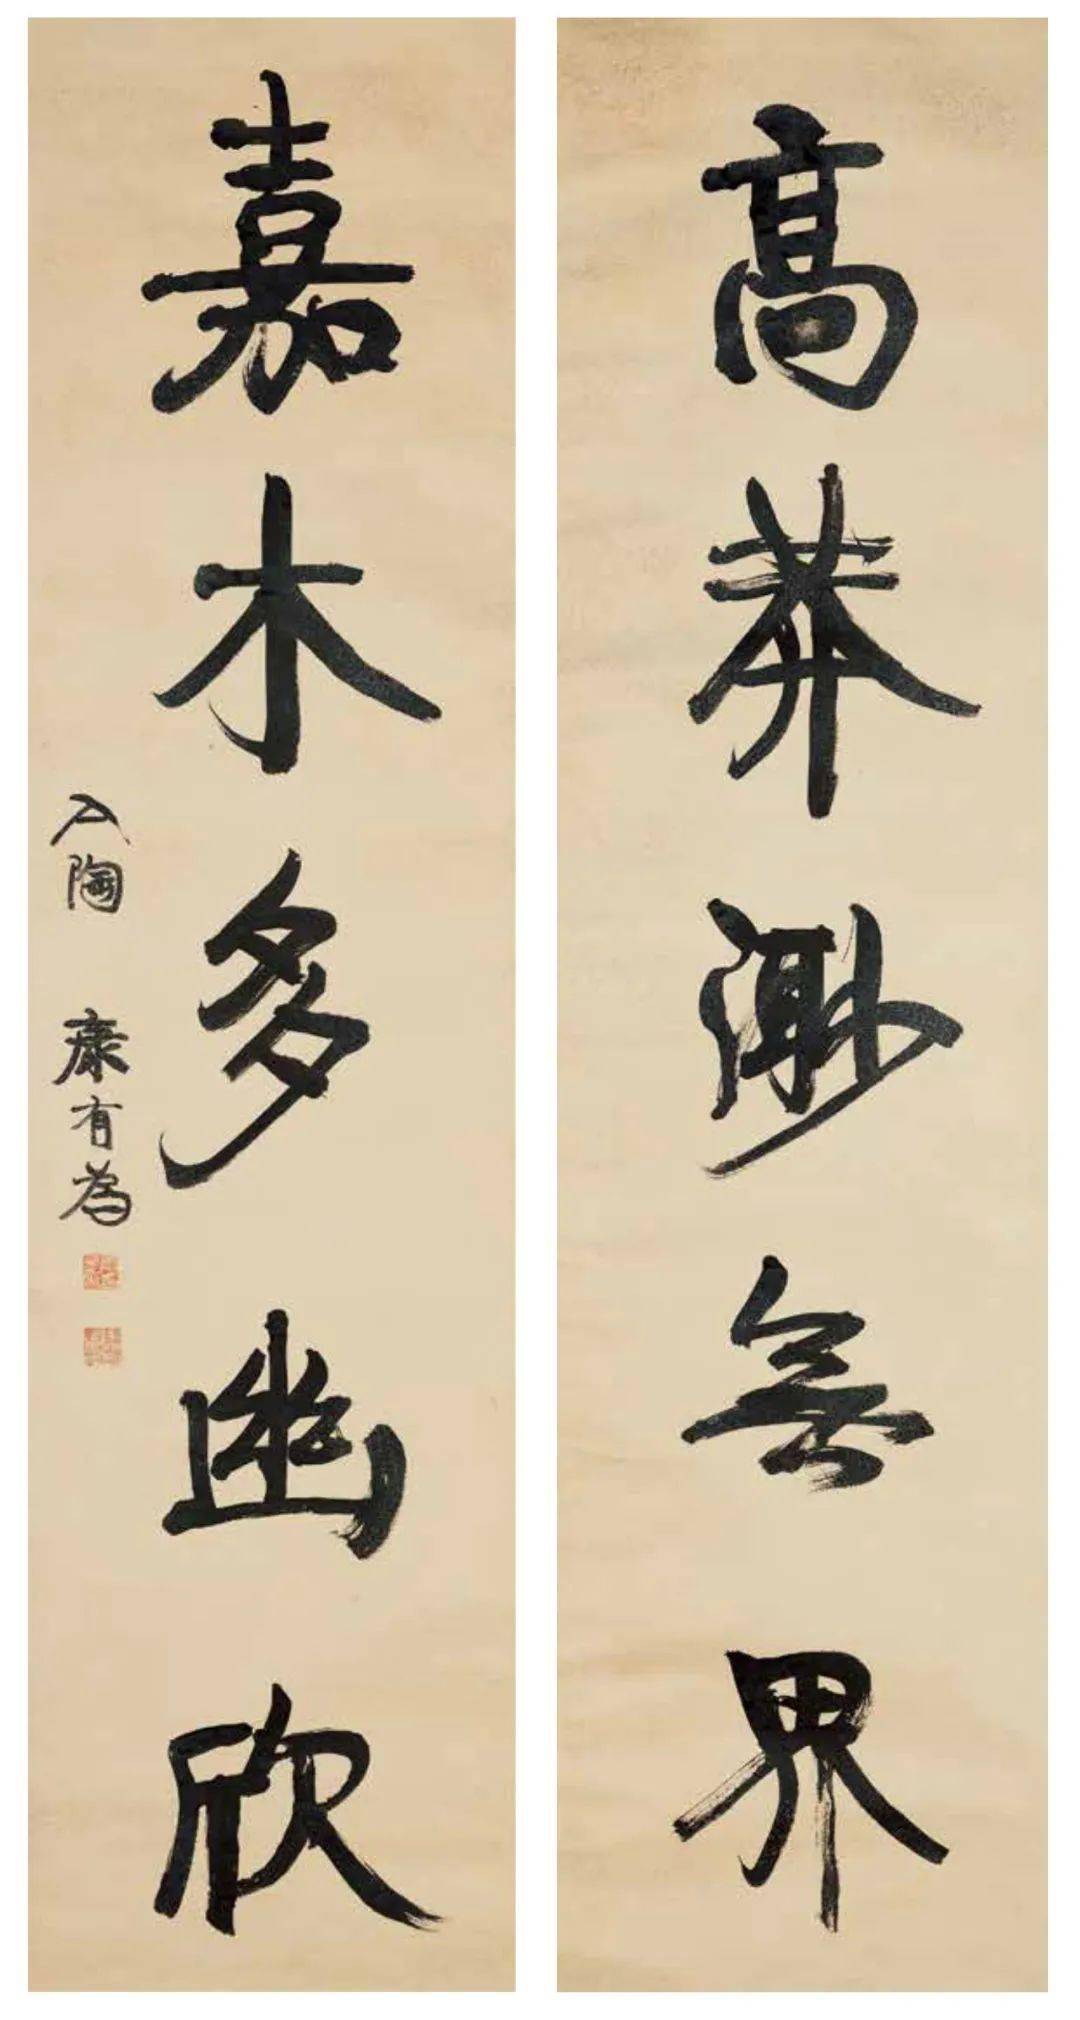 高莽渺無界
嘉木多幽欣
亼陶 康有為